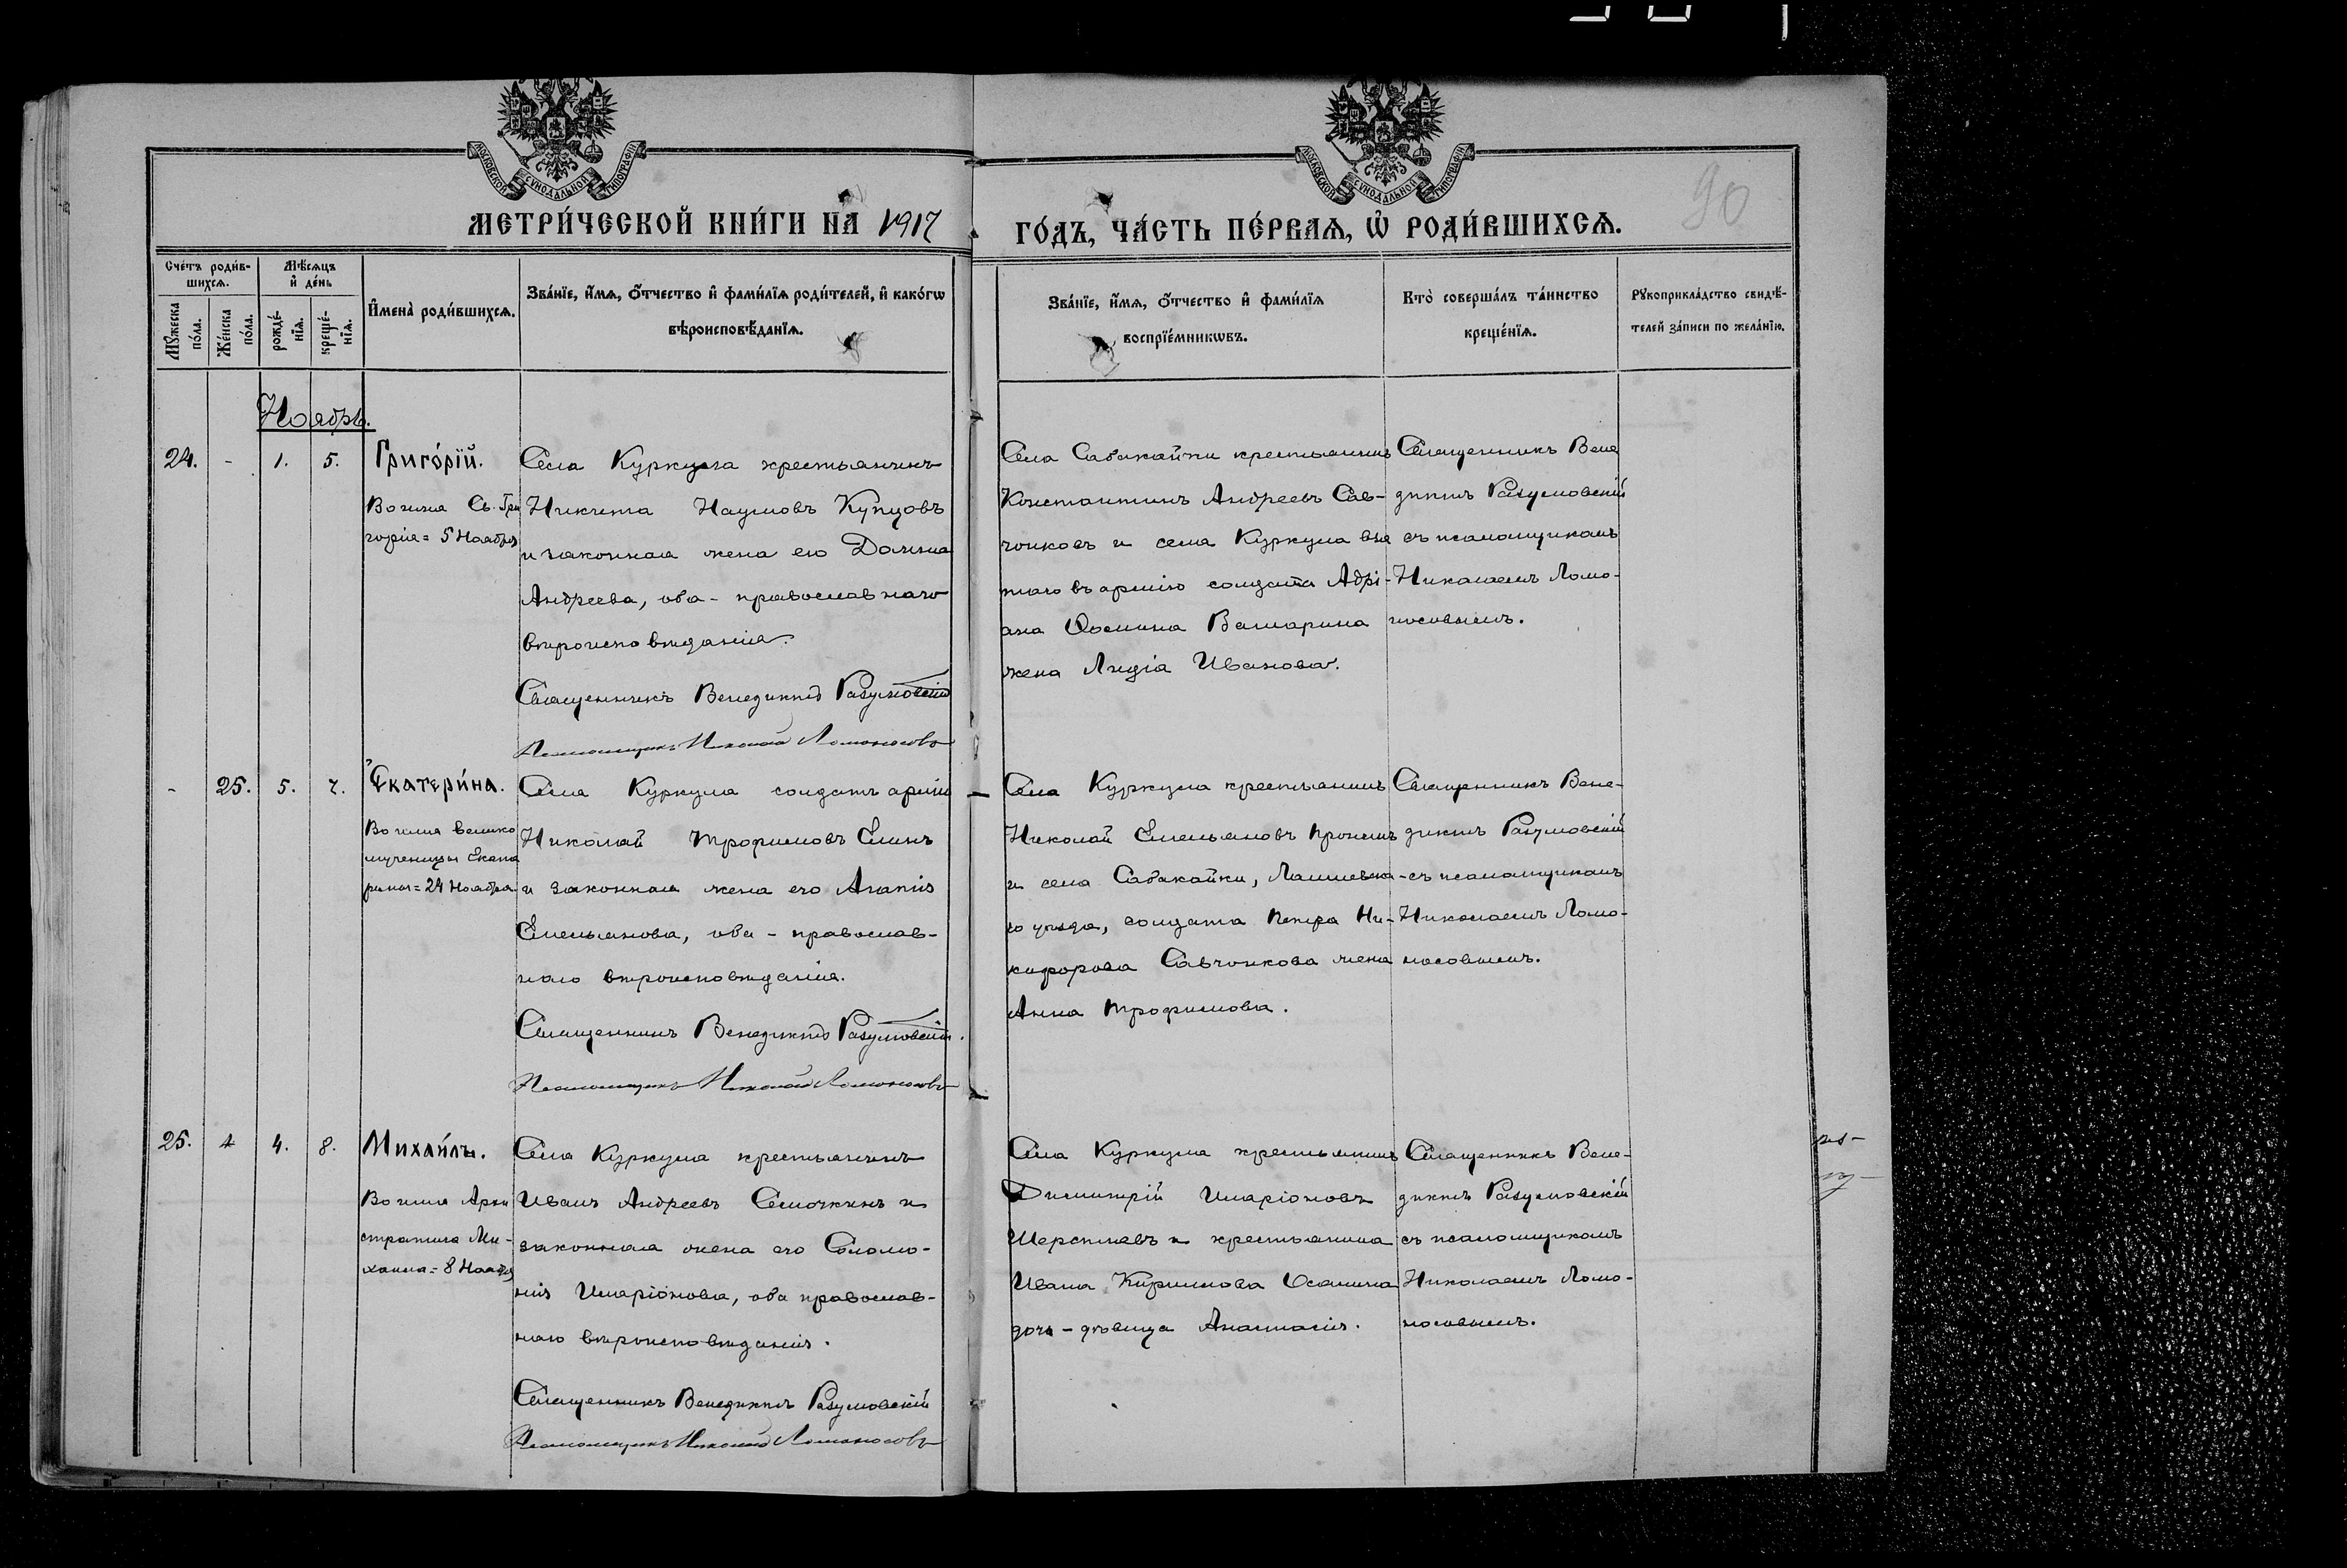 МОСКОВСКОЙ СѴНОДАЛЬНОЙ ТИПОГРАФІИ
МОСКОВСКОЙ СѴНОДАЛЬНОЙ ТИПОГРАФІИ
90
МЕТРИ́ЧЕСКОЙ КНИ́ГИ НА 1917
ГО́ДЪ, ЧА́СТЬ ПЕ́РВАѦ, Ѡ҆ РОДИ́ВШИХСѦ.
Сче́тъ роди́в-
шихсѧ.
Мѣ́сѧцъ
и҆ де́нь
Мꙋ́жеска
по́ла.
Же́нска
по́ла.
рожде́-
нїѧ.
креще́-
нїѧ.
И҆мена̀ роди́вшихсѧ.
Зва́нїе, и҆́мѧ, ѻ҆́тчество и҆ фами́лїѧ роди́телей, и҆ како́гѡ
вѣроисповѣ́данїѧ.
Зва́нїе, и҆́мѧ, ѻ҆́тчество и҆ фами́лїѧ
воспрїе́мникѡвъ.
Кто̀ соверша́лъ та́инство
креще́нїѧ.
Рꙋкоприкла́дство свидѣ́-
телей за́писи по жела́нїю.
Ноябрь.
24. - 1. 5.
Григо́рій.
Во имя Св. Гри
горія = 5 Ноября
Села Куркула крестьянинъ
Никита Наумовъ Купцовъ
и законная жена его Домна
Андреева, оба - православнаго
вѣроисповѣданія.
Священникъ Венедиктъ Разумовскій
Псаломщикъ Николай Ломоносовъ
Села Сабакайки крестьянинъ
Константинъ Андреевъ Сав-
чонковъ и села Куркула взя
таго въ армію солдата Адрі-
ана
жена Лидія Иванова.
Священникъ Вене
диктъ Разумовскій
съ псаломщикомъ
Николаемъ Ломо-
носовымъ.
- 25. 5. 7.
Екатери́на.
Во имя велико
мученицы Екате
рины = 24 Ноября
Села Куркула солдатъ арміи
Николай Трофимовъ Елинъ
и законная жена его Агапія
Емельянова, оба - православ-
наго вѣроисповѣданія.
Священникъ Венедиктъ Разумовскій.
Псаломщикъ Николай Ломоносовъ
Села Куркула крестьянинъ
Николай Емельяновъ Пронинъ
и села Сабакайки, Лаишевска-
го уѣзда, солдата Петра Ни-
кифорова Савчонкова жена
Анна Трофимова.
Священникъ Вене-
диктъ Разумовскій
съ псаломщикомъ
Николаемъ Ломо-
носовымъ.
25. 4. 8.
Михаи́лъ.
Во имя Архи
стратига Ми-
хаила = 8 Ноября
Села Куркула крестьянинъ
Иванъ Андреевъ Семочкинъ и
законная жена его Соломо-
нія Иларіонова, оба православ-
наго вѣроисповѣданія.
Священникъ Венедиктъ Разумовскій
Псаломщикъ Николай Ломоносовъ
Села Куркула крестьянинъ
Димитрій Иларіоновъ
и крестьянина
Ивана Кириллова Осянина
дочь - дѣвица Анастасія.
Священникъ Вене-
диктъ Разумовскій
съ псаломщикомъ
Николаемъ Ломо-
носовымъ.